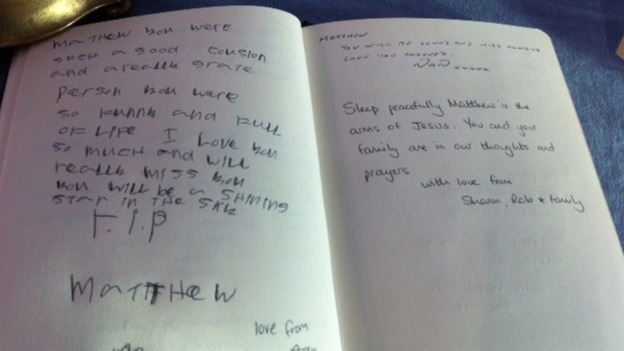 matthew you were
such a good cousion
and a really grate
person you were
so funny and full
of life I Love you
so much and will
really miss you
you will be a shining
star in the sky
r.I.P
MaTTHew
love from
MATTHEW
YOU WILL BE
LOVE YOU
Sleep peacefully Matthew in the
arms of Jesus. You and your
family are in our thoughts and
prayers
with love from
Sharon, Rob + family